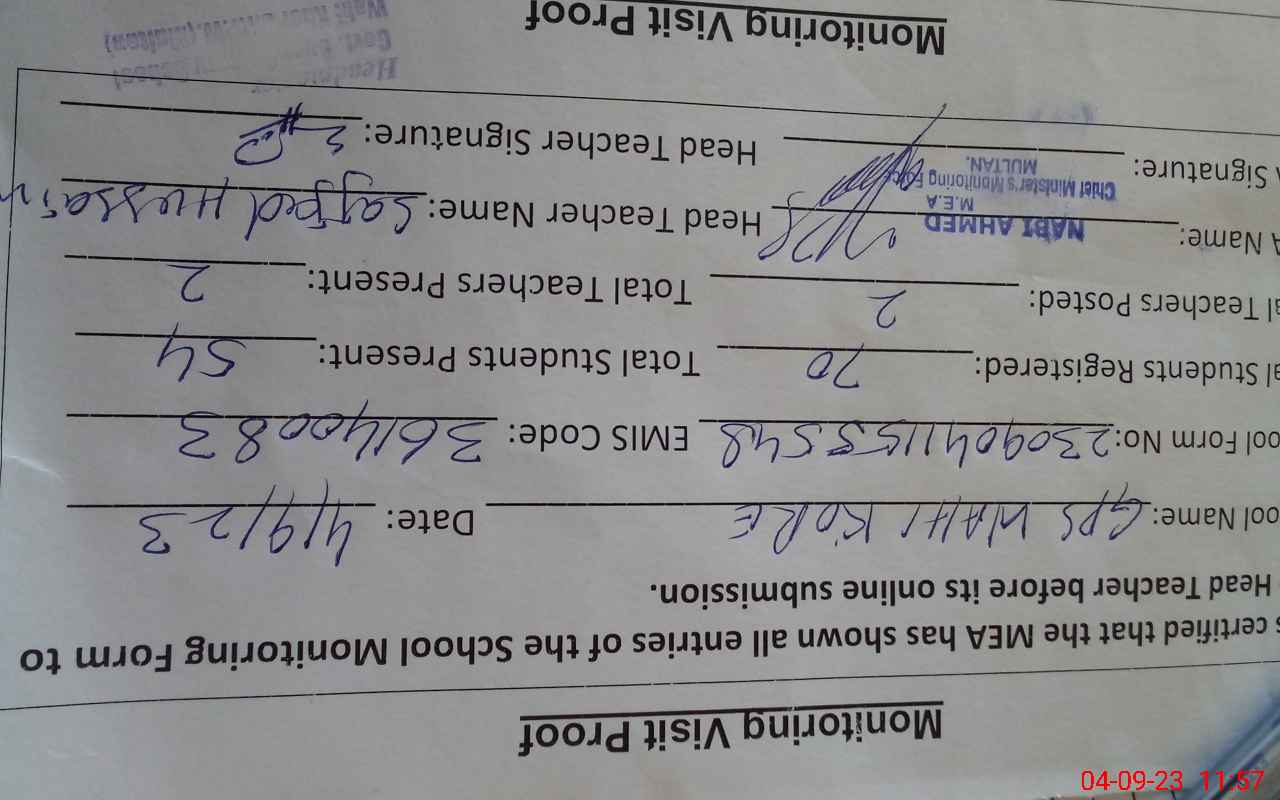 Monitoring Visit Proof
certified that the MEA has shown all entries of the School Monitoring Form to
Head Teacher before its online submission.
ool Name: GPS WAHI KORE Date: 4/9/23
ool Form No: EMIS Code: 36140083
al Students Registered: 70 Total Students Present: 54
al Teachers Posted: 2 Total Teachers Present: 2
A Name: NABI AHMED Head Teacher Name: Sajjed Hussain
M.E.A
Chief Minister's Monitoring Force
MULTAN.
A Signature: Head Teacher Signature:
Monitoring Visit Proof
04-09-23 11:57